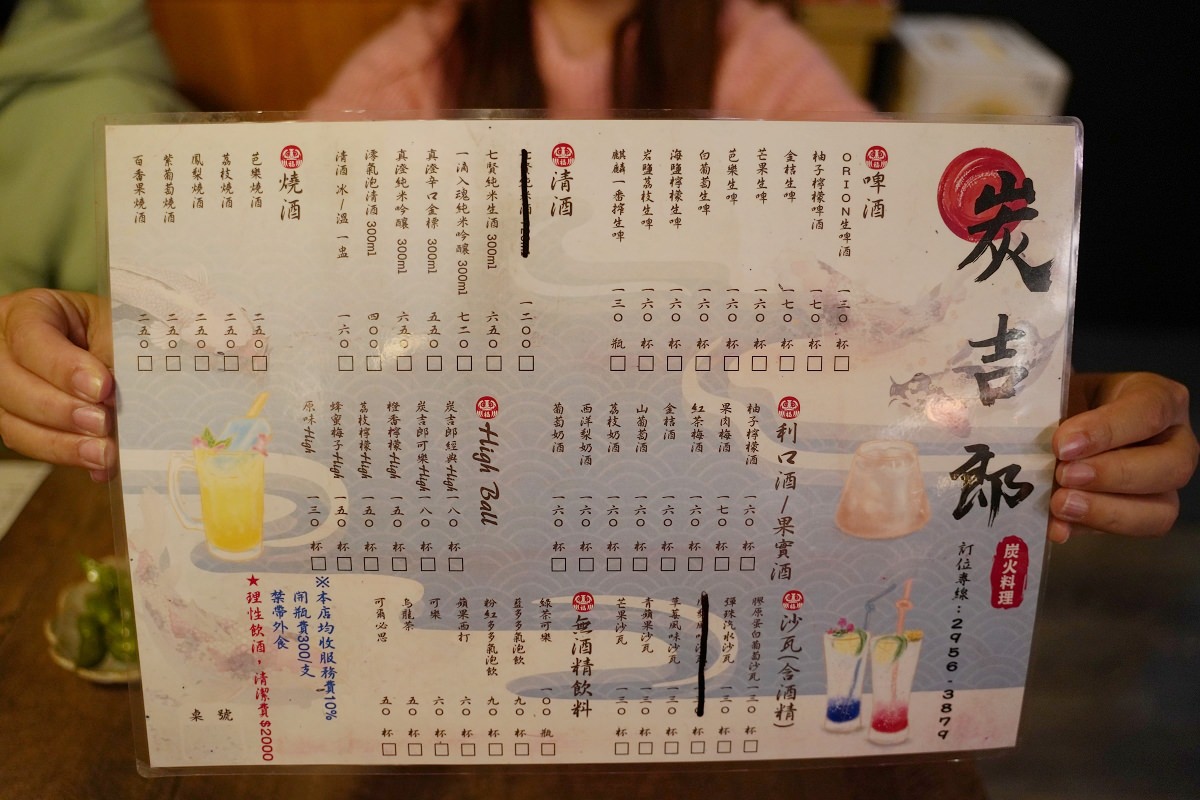 炭吉郎
炭火料理
訂位專線:2956-3879
啤酒
ORION生啤酒 一三〇 杯
柚子檸檬啤酒 一七〇 杯
金桔生啤 一七〇 杯
芒果生啤 一六〇 杯
芭樂生啤 一六〇 杯
白葡萄生啤 一六〇 杯
海鹽檸檬生啤 一六〇 杯
岩鹽荔枝生啤 一六〇 杯
麒麟一番搾生啤 一三〇 瓶
清酒
一二〇〇
七賢純米生酒 300ml 六五〇
一滴入魂純米吟釀 300ml 七二〇
真澄辛口金標 300ml 五五〇
真澄純米吟釀 300ml 六五〇
澪氣泡清酒 300ml 四〇〇
清酒 冰/溫 一盅 一六〇
燒酒
芭樂燒酒 二五〇
荔枝燒酒 二五〇
鳳梨燒酒 二五〇
紫葡萄燒酒 二五〇
百香果燒酒 二五〇
利口酒/果實酒
柚子檸檬酒 一六〇 杯
果肉梅酒 一七〇 杯
紅茶梅酒 一六〇 杯
金桔酒 一六〇 杯
山葡萄酒 一六〇 杯
荔枝奶酒 一六〇 杯
西洋梨奶酒 一六〇 杯
葡萄奶酒 一六〇 杯
High Ball
炭吉郎經典High 一八〇 杯
炭吉郎可樂High 一八〇 杯
橙香檸檬High 一五〇 杯
荔枝檸檬High 一五〇 杯
蜂蜜梅子High 一五〇 杯
原味High 一三〇 杯
沙瓦(含酒精)
膠原蛋白葡萄沙瓦 一三〇 杯
彈珠汽水沙瓦 一三〇 杯
杯
草莓風味沙瓦 一三〇 杯
青蘋果沙瓦 一三〇 杯
芒果沙瓦 一三〇 杯
無酒精飲料
綠茶可樂 一〇〇 瓶
益多多氣泡飲 九〇 杯
粉紅多多氣泡飲 九〇 杯
蘋果西打 六〇 杯
可樂 六〇 杯
烏龍茶 五〇 杯
可爾必思 五〇 杯
※本店均收服務費10%
開瓶費300/支
禁帶外食
★理性飲酒,清潔費$2000
桌號